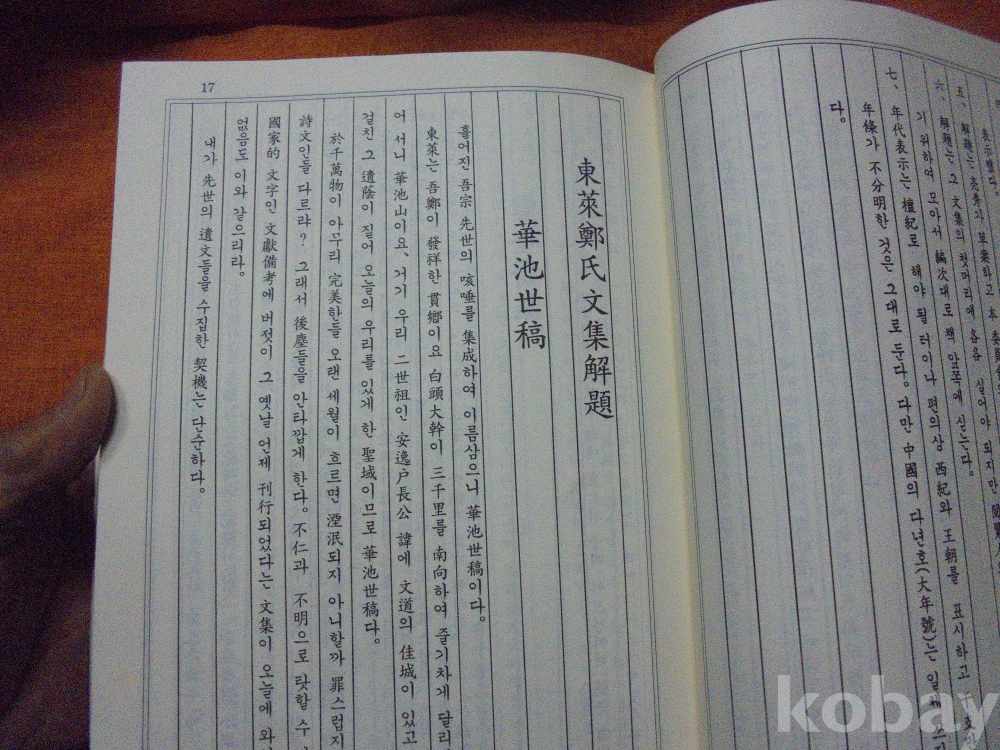 表示했다.
五、解題는
六、解題는 그 文集의 첫머리에 各各 실어야 되지만
기 위하여 모아서 編次대로 책 앞쪽에 싣는다.
七、年代表示는 檀紀로 해야 될 터이나 편의상 西紀와 王朝를 표시하고
年條가 不分明한 것은 그대로 둔다. 다만 中國의 다년호(大年號)는 일체
다.
17
東萊鄭氏文集解題
華池世稿
흩어진 吾宗 先世의 咳唾를 集成하여 이름삼으니 華池世稿이다.
東萊는 吾鄭이 發祥한 貫鄕이요 白頭大幹이 三千里를 南向하여 줄기차게 달리
어 서니 華池山이요, 거기 우리 二世祖인 安逸戶長公 諱에 文道의 佳城이 있고
걸친 그 遺蔭이 짙어 오늘의 우리를 있게 한 聖域이므로 華池世稿다.
於千萬物이 아무리 完美한들 오랜 세월이 흐르면 湮泯되지 아니할까 罪스럽지
詩文인들 다르랴? 그래서 後塵들을 안타깝게 한다. 不仁과 不明으로 탓할 수
國家的 文字인 文獻備考에 버젓이 그 옛날 언제 刊行되었다는 文集이 오늘에 와
없음도 이와 같으리라.
내가 先世의 遺文들을 수집한 契機는 단순하다.
kobay